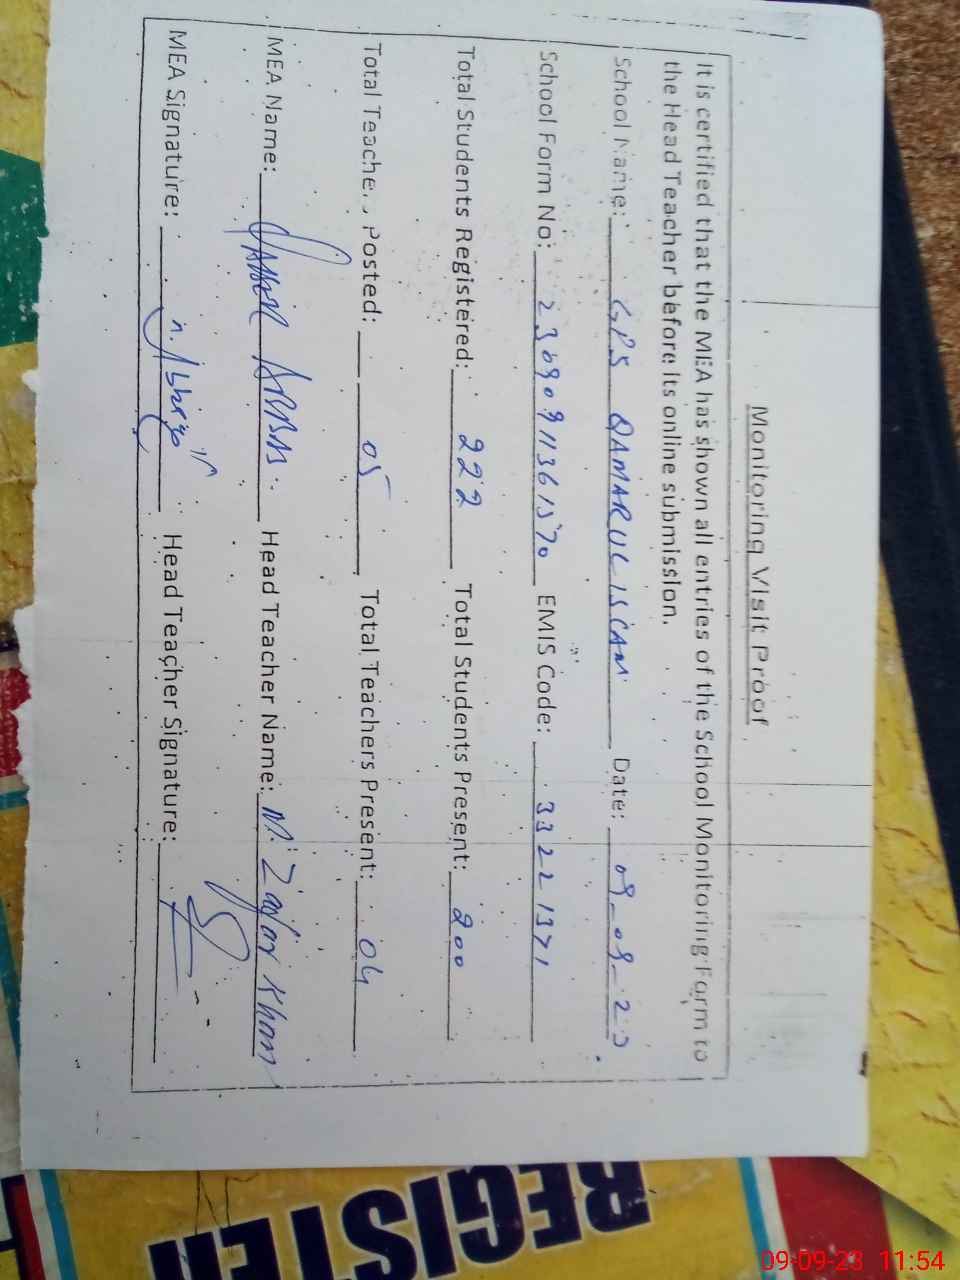 Monitoring Visit Proof
It is certified that the MEA has shown all entries of the School Monitoring Form to
the Head Teacher before its online submission.
School Name: GPS QAMARUL ISLAM Date: 09-09-23
School Form No: EMIS Code: 33221371
Total Students Registered: 222 Total Students Present: 200
Total Teache.. Posted: 05 Total Teachers Present: 04
MEA Name: YASSIR ABBAS Head Teacher Name: M. Zafar Khan
MEA Signature: Head Teacher Signature:
REGISTER
09-09-23 11:54